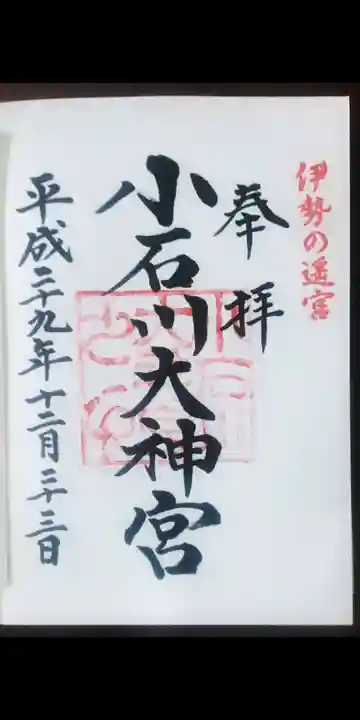 伊勢の遥宮
奉拝
小石川大神宮
平成二十九年十二月二十三日